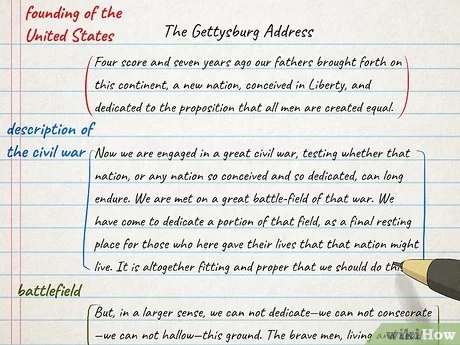 founding of the
United States
The Gettysburg Address
Four score and seven years ago our fathers brought forth on
this continent, a new nation, conceived in Liberty, and
dedicated to the proposition that all men are created equal.
description of
the civil war
Now we are engaged in a great civil war, testing whether that
nation, or any nation so conceived and so dedicated, can long
endure. We are met on a great battle-field of that war. We
have come to dedicate a portion of that field, as a final resting
place for those who here gave their lives that that nation might
live. It is altogether fitting and proper that we should do
battlefield
But, in a larger sense, we can not dedicate—we can not consecrate
—we can not hallow—this ground. The brave men, living
wikiHow